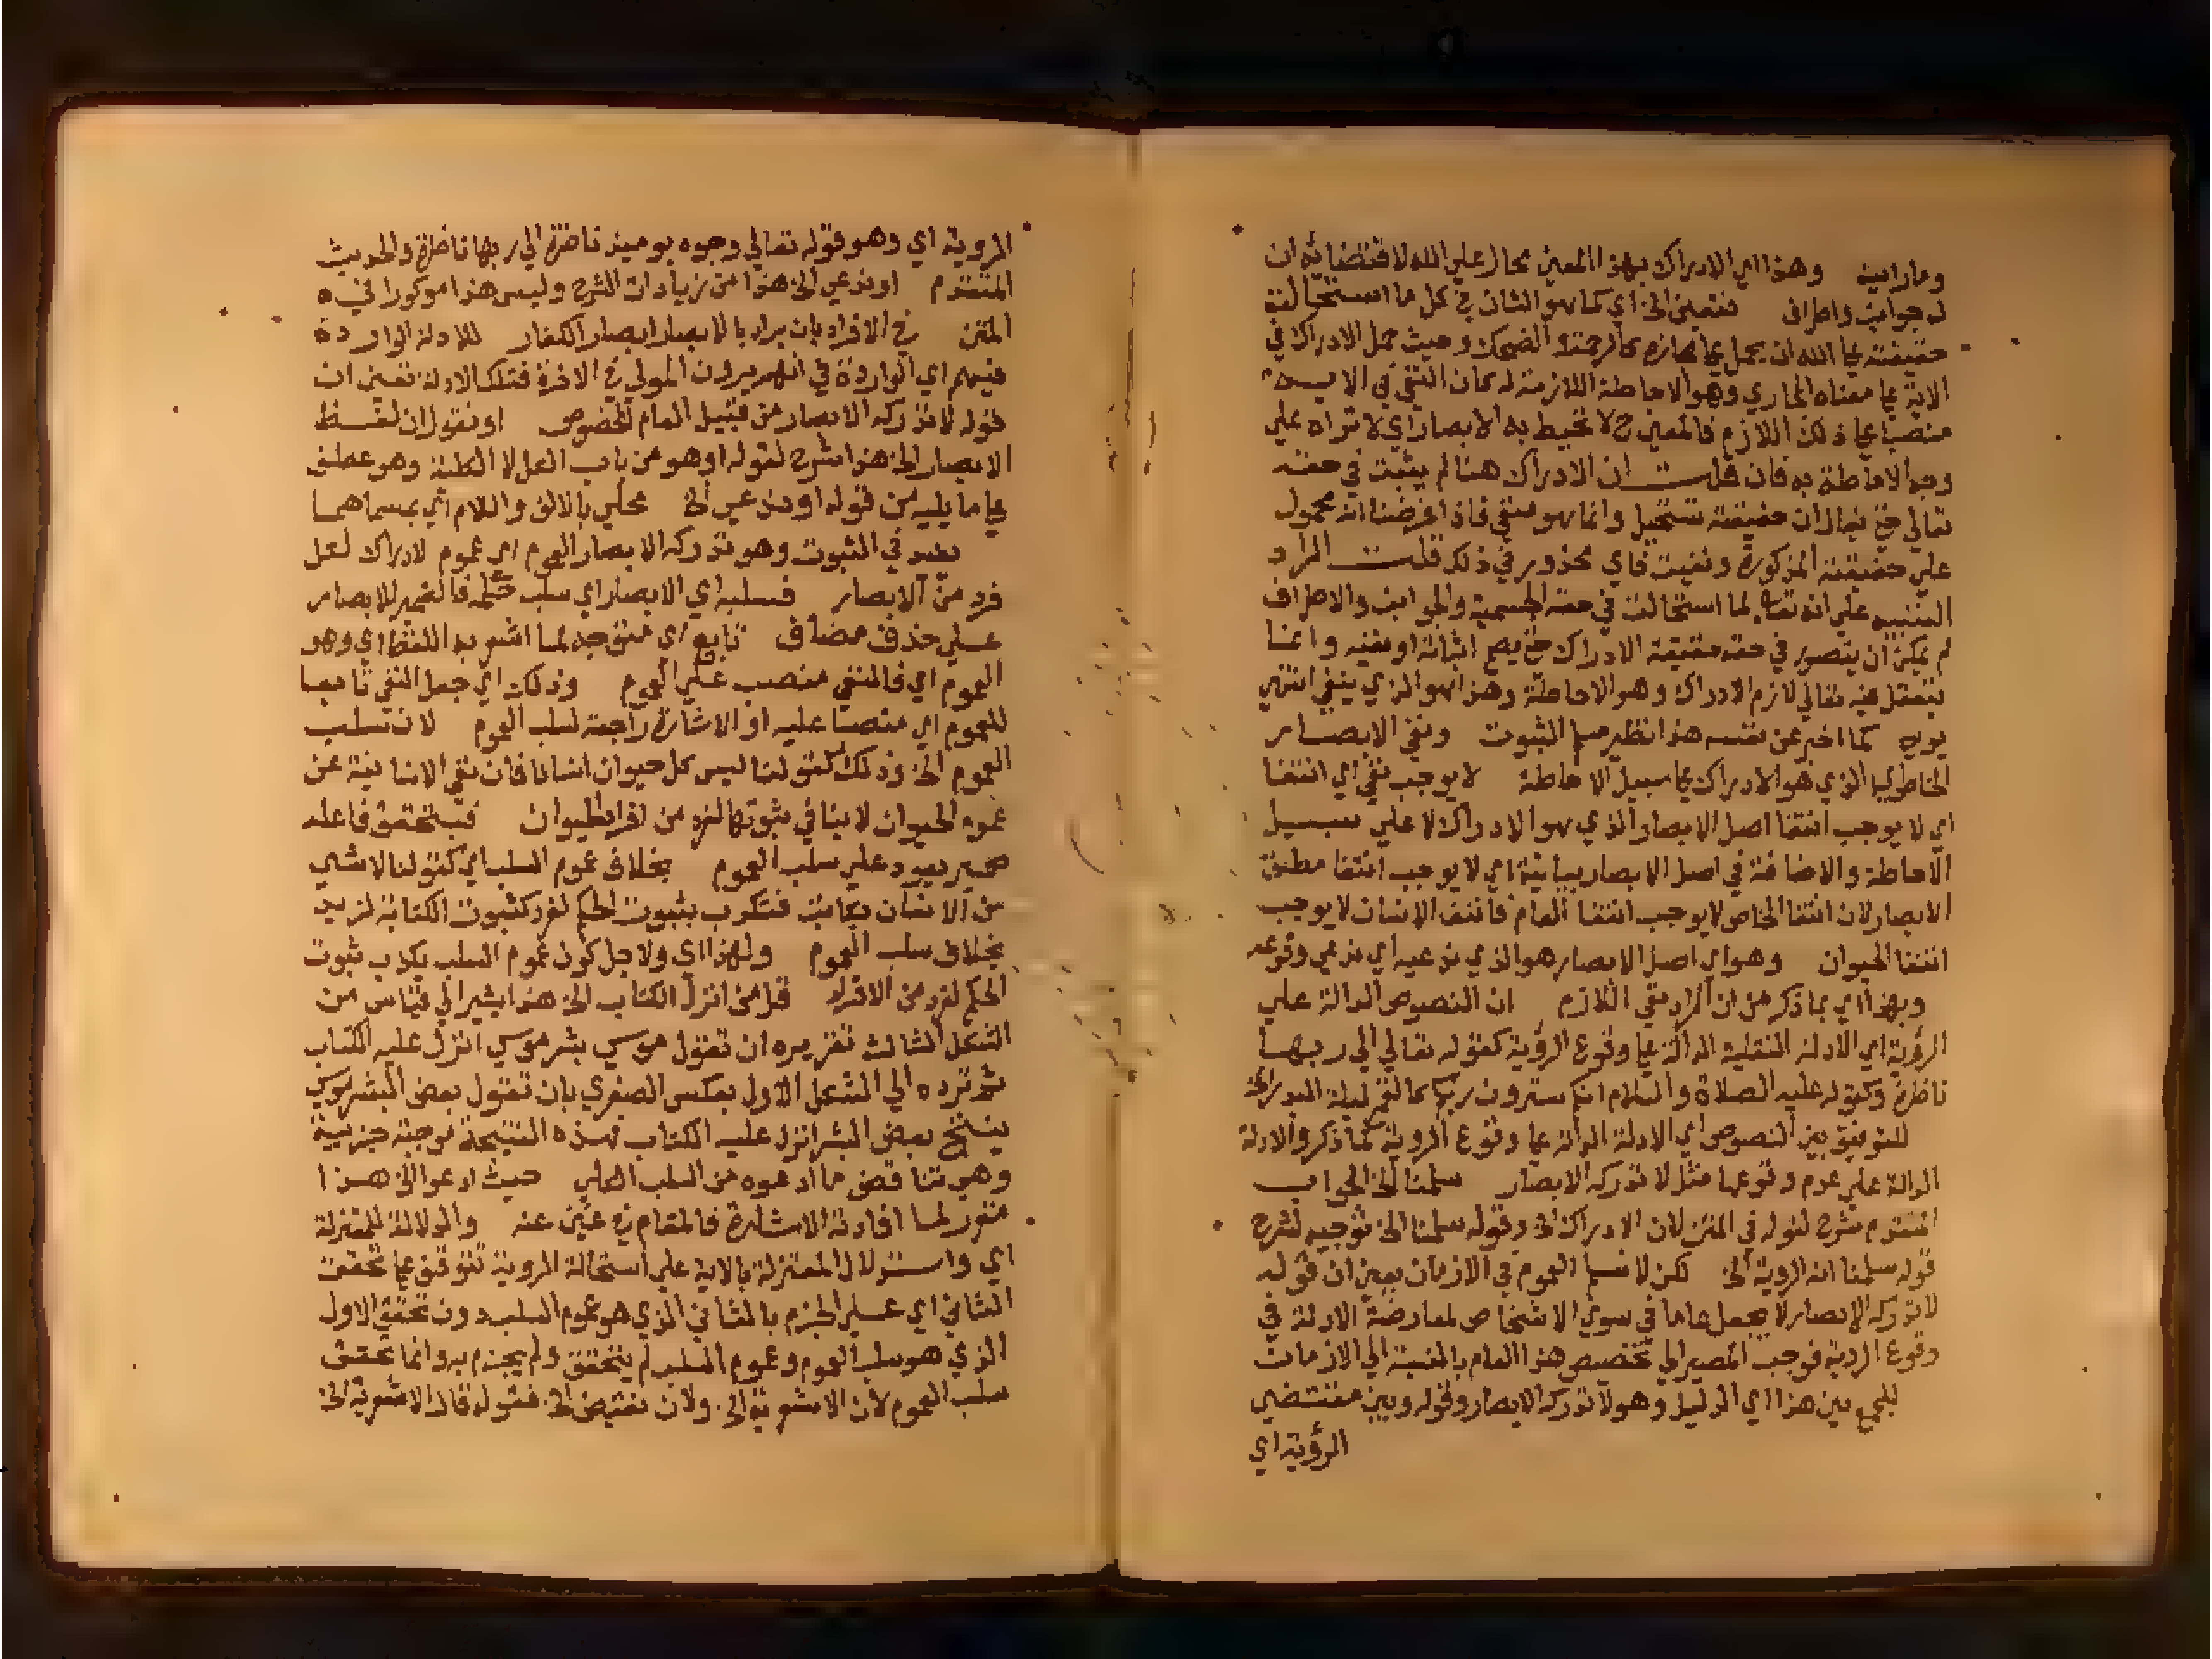 وما رايت وهذا اي الادراك بهذا المعني محال علي الله لاقتضائه ان
له جوانب واطراف فتعين الخ اي كما هو الشان في كل ما استحالت
حقيقته علي الله ان يحمل علي مجازه كالرحمة والضحك وحيث حمل الادراك في
الاية علي معناه المجازي وهو الاحاطة اللازمة له كان النفي في الاية
منصبا علي ذلك اللازم فالمعني ح لا تحيط به الابصار اي لا تراه علي
وجه الاحاطة به فان قلت ان الادراك هنا لم يثبت في حقه
تعالي حتي يقال ان حقيقته تستحيل وانما هو منفي فاذا فرضنا انه محمول
علي حقيقته المذكورة ونفيت فاي محذور في ذلك قلت المراد
التنبيه علي انه تعالي لما استحالت في حقه الجسمية والجوانب والاطراف
لم يمكن ان يتصور في حقه حقيقة الادراك حتي يصح اثباته او نفيه وانما
يتعقل عنه تعالي لازم الادراك وهو الاحاطة وهذا هو الذي ينفي انتهي
يويه كما اخبر عن نفسه هذا نظير الثبوت ونفي الابصار
الخاص الذي هو الادراك علي سبيل الاحاطة لا يوجب نفي اي انتفا
اي لا يوجب انتفا اصل الابصار الذي هو الادراك لا علي سبيل
الاحاطة والاضافة في اصل الابصار بيانية اي لا يوجب انتفا مطلق
الابصار لان انتفا الخاص لا يوجب انتفا العام فانتفا الانسان لا يوجب
انتفا الحيوان وهو اي اصل الابصار هو الذي ندعيه اي ندعي وقوعه
وبهذا اي بما ذكر من ان المراد نفي اللازم ان النصوص الدالة علي
الرؤية اي الادلة النقلية الدالة علي وقوع الرؤية كقوله تعالي الي ربها
ناظرة وكقوله عليه الصلاة والسلام انكم سترون ربكم كالقمر ليلة البدر الخ
للتوفيق بين النصوص اي الادلة الدالة علي وقوع الروية كما ذكر والادلة
الدالة علي عدم وقوعها مثل لا تدركه الابصار سلمنا الخ الجواب
المتقدم شرح لقوله في المتن لان الادراك الخ وقوله سلمنا الخ توجيه لشرح
قوله سلمنا انه الروية الخ لكن لا نسلم العموم في الازمان يعني ان قوله
لا تدركه الابصار لا يجعل عاما في سوي الاشخاص لمعارضة الادلة في
وقوع الروية فوجب المصير الي تخصيص هذا العام بالنسبة الي الازمان
للجمع بين هذا اي الدليل وهو لا تدركه الابصار وقوله وبين مقتضي
الرؤية اي
الروية اي وهو قوله تعالي وجوه يوميذ ناضرة الي ربها ناظرة والحديث
المتقدم او ندعي الخ هذا من زيادات الشرح وليس هذا مذكورا في
المتن في الافراد بان يراد بالابصار ابصار الكفار للادلة الواردة
فيهم اي الواردة في انهم يرون المولي في الاخرة فتلك الادلة تعين ان
قوله لا تدركه الابصار من قبيل العام المخصوص او نقول ان لفظ
الابصار الخ هذا شرح لقوله او هو من باب الكل لا الكلية وهو عطف
علي ما يليه من قوله او ندعي الخ محلي بالالف واللام اي بمسماهما
يفيد في الثبوت وهو تدركه الابصار العموم اي عموم لادراك لكل
فرد من الابصار فسلبه اي الابصار اي سلب حكمه فالضمير للابصار
علي حذف مضاف تابع اي متوجه لما اشعر به اللفظ اي وهو
العموم اي فالنفي منصب علي العموم وذلك اي جعل النفي تابعا
للعموم اي منصبا عليه او الاشارة راجعة لسلب العموم لان سلب
العموم الخ وذلك كقولنا ليس كل حيوان انسانا فان نفي الانسانية عن
عموم الحيوان لا ينافي ثبوتها لفرد من افراد الحيوان فيتحقق فاعله
ضمير يعود علي سلب العموم بخلاف عموم السلب اي كقولنا لا شي
من الانسان بكاتب فتكذب بثبوت الحكم لفرد كثبوت الكتابة لزيد
بخلاف سلب العموم ولهذا اي ولاجل كون عموم السلب يكذب ثبوت
الحكم لفرد من الافراد قل من انزل الكتاب الخ هذا يشير الي قياس من
الشكل الثالث تقريره ان تقول موسي بشر موسي انزل عليه الكتاب
ثم ترده الي الشكل الاول بعكس الصغري بان تقول بعض البشر موسي
ينتج بعض البشر انزل عليه الكتاب فهذه النتيجة موجبة جزيية
وهي تناقض ما ادعوه من السلب الكلي حيث ادعوا الخ هذا
مقرر لما افادته الاشارة فالمقام في غني عنه والدلالة للمعتزلة
اي واستدلال المعتزلة بالاية علي استحالة الروية تتوقف علي تحقق
الثاني اي علي الجزم بالثاني الذي هو عموم السلب دون تحقق الاول
الذي هو سلب العموم وعموم السلب لم يتحقق ولم يجزم به وانما تحقق
سلب العموم لان الاشعرية الخ ولان نقيض الخ فقوله قال الاشعرية الخ